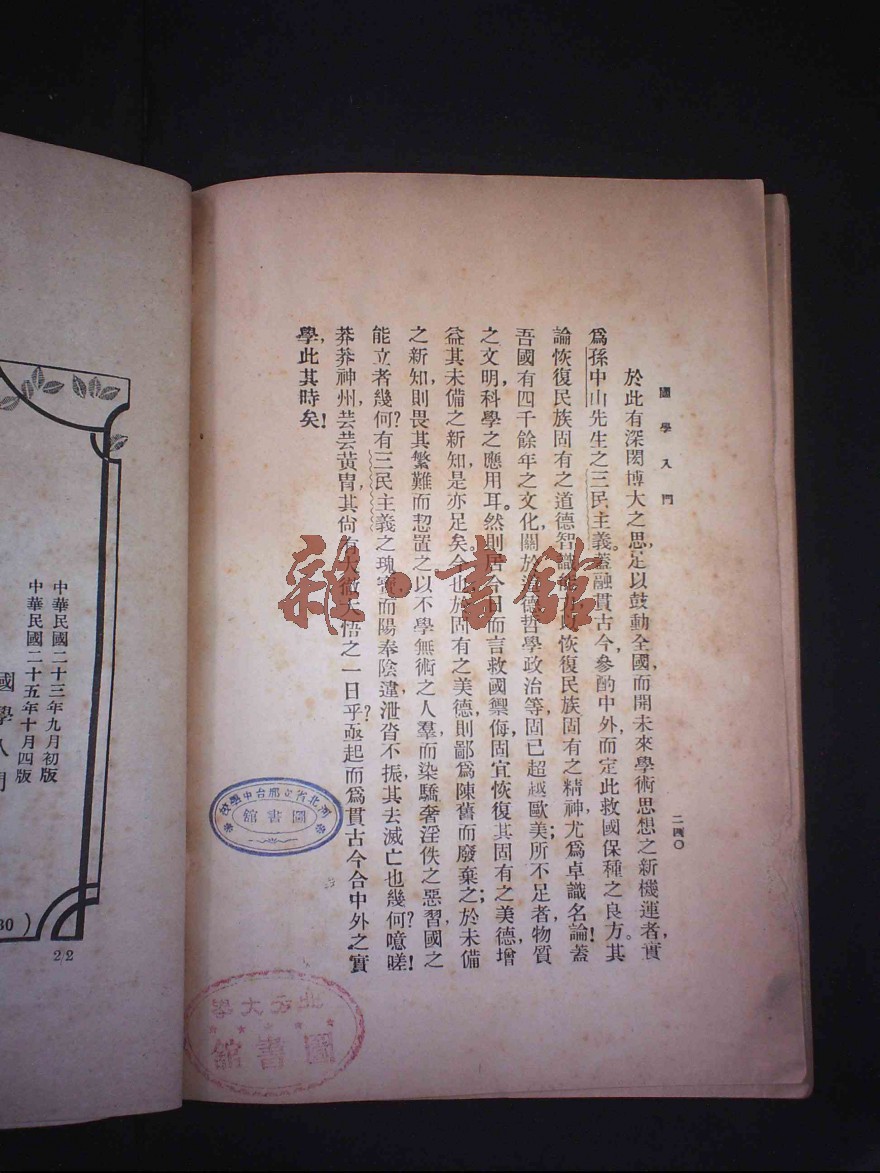 國學入門
二四〇
於此有深閎博大之思,足以鼓動全國,而開未來學術思想之新機運者,實
爲孫中山先生之三民主義。蓋融貫古今,參酌中外,而定此救國保種之良方。其
論恢復民族固有之道德智識能力以恢復民族固有之精神尤爲卓識名論!蓋
吾國有四千餘年之文化,關於道德哲學政治等,固已超越歐美,所不足者,物質
之文明,科學之應用耳。然則居今日而言救國禦侮,固宜恢復其固有之美德,增
益其未備之新知,是亦足矣。今也於固有之美德,則鄙爲陳舊而廢棄之;於未備
之新知,則畏其繁難而恝置之。以不學無術之人羣,而染驕奢淫佚之惡習,國之
能立者幾何?有三民主義之瑰寶,而陽奉陰違,泄沓不振,其去滅亡也幾何?噫嗟!
莽莽神州,芸芸黃冑,其尙有大徹大悟之一日乎?亟起而爲貫古今合中外之實
學,此其時矣!
河北省立邢台中學校
圖書館
北方大學
圖書館
雜·書館
中華民國二十三年九月初版
中華民國二十五年十月四版
國學入門
30)
22